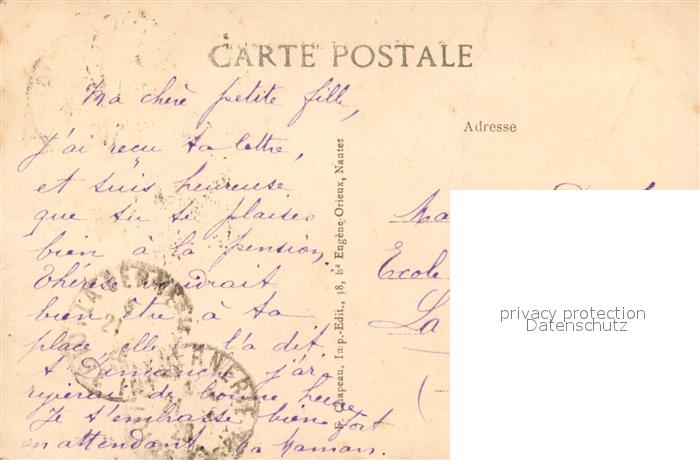 CARTE POSTALE
Ma chère petite fille,
J'ai reçu ta lettre,
et suis heureuse
que tu te plaises
bien à la pension,
Thérèse voudrait
bien être à ta
place, elle me l'a dit.
A Dimanche j'ar-
riverai de bonne heure
Je t'embrasse bien fort
en attendant. Ta Maman.
Adresse
Chapeau, Imp.-Edit., 38, Bd Eugène-Orieux, Nantes
Ecole
La
privacy protection
Datenschutz